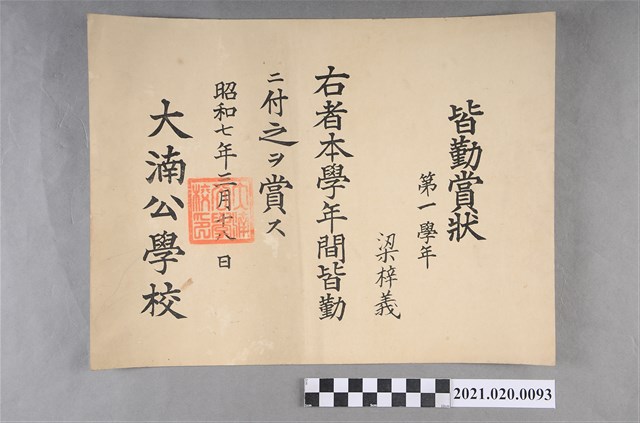 皆勤賞狀
第一學年
梁梓義
右者本學年間皆勤
ニ付之ヲ賞ス
昭和七年三月十八日
大湳公學校
2021.020.0093